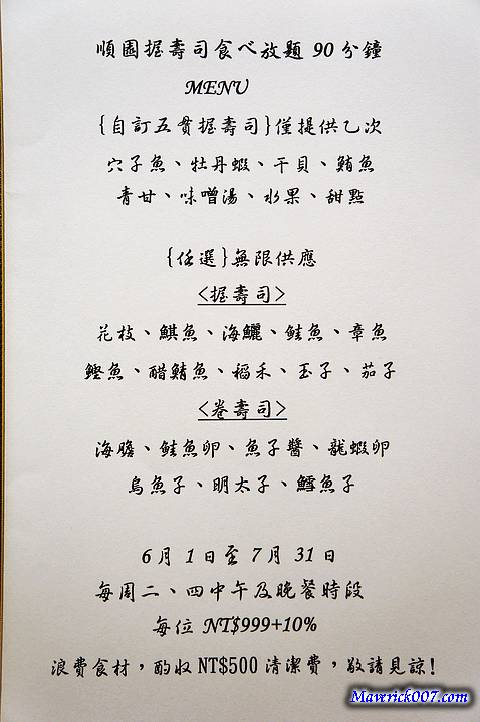 順園握壽司食べ放題 90 分鐘
MENU
{自訂五貫握壽司}僅提供乙次
穴子魚、牡丹蝦、干貝、鮪魚
青甘、味噌湯、水果、甜點
{任選}無限供應
<握壽司>
花枝、鯕魚、海鱺、鮭魚、章魚
鰹魚、醋鯖魚、稻禾、玉子、茄子
<卷壽司>
海膽、鮭魚卵、魚子醬、龍蝦卵
烏魚子、明太子、鱈魚子
6 月 1 日至 7 月 31 日
每周二、四中午及晚餐時段
每位 NT$999+10%
浪費食材，酌收 NT$500 清潔費，敬請見諒!
Maverick007.com